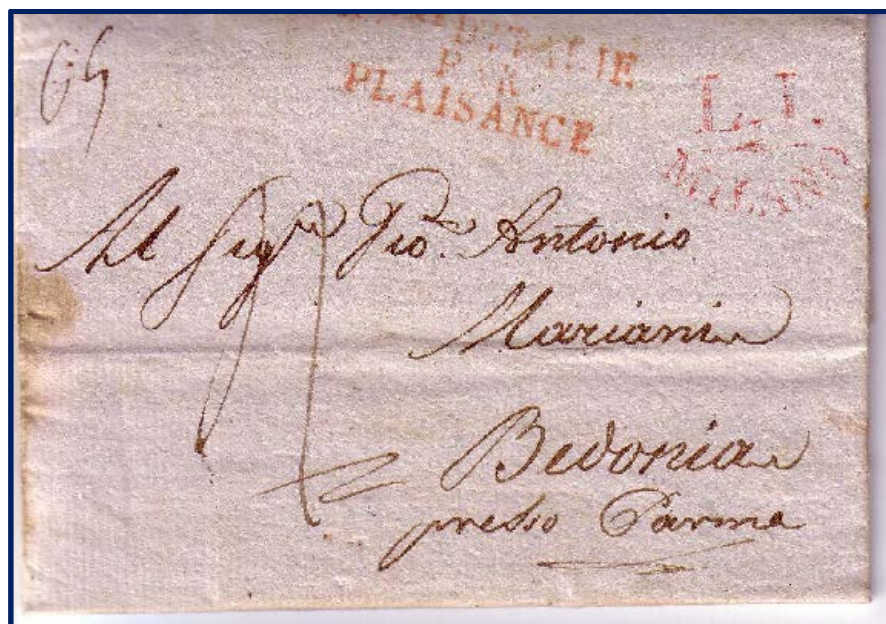 D'ITALIE
PAR
PLAISANCE
L. I.
MILANO
Al Sig.r Gio. Antonio
Mariani
Bedonia
presso Parma